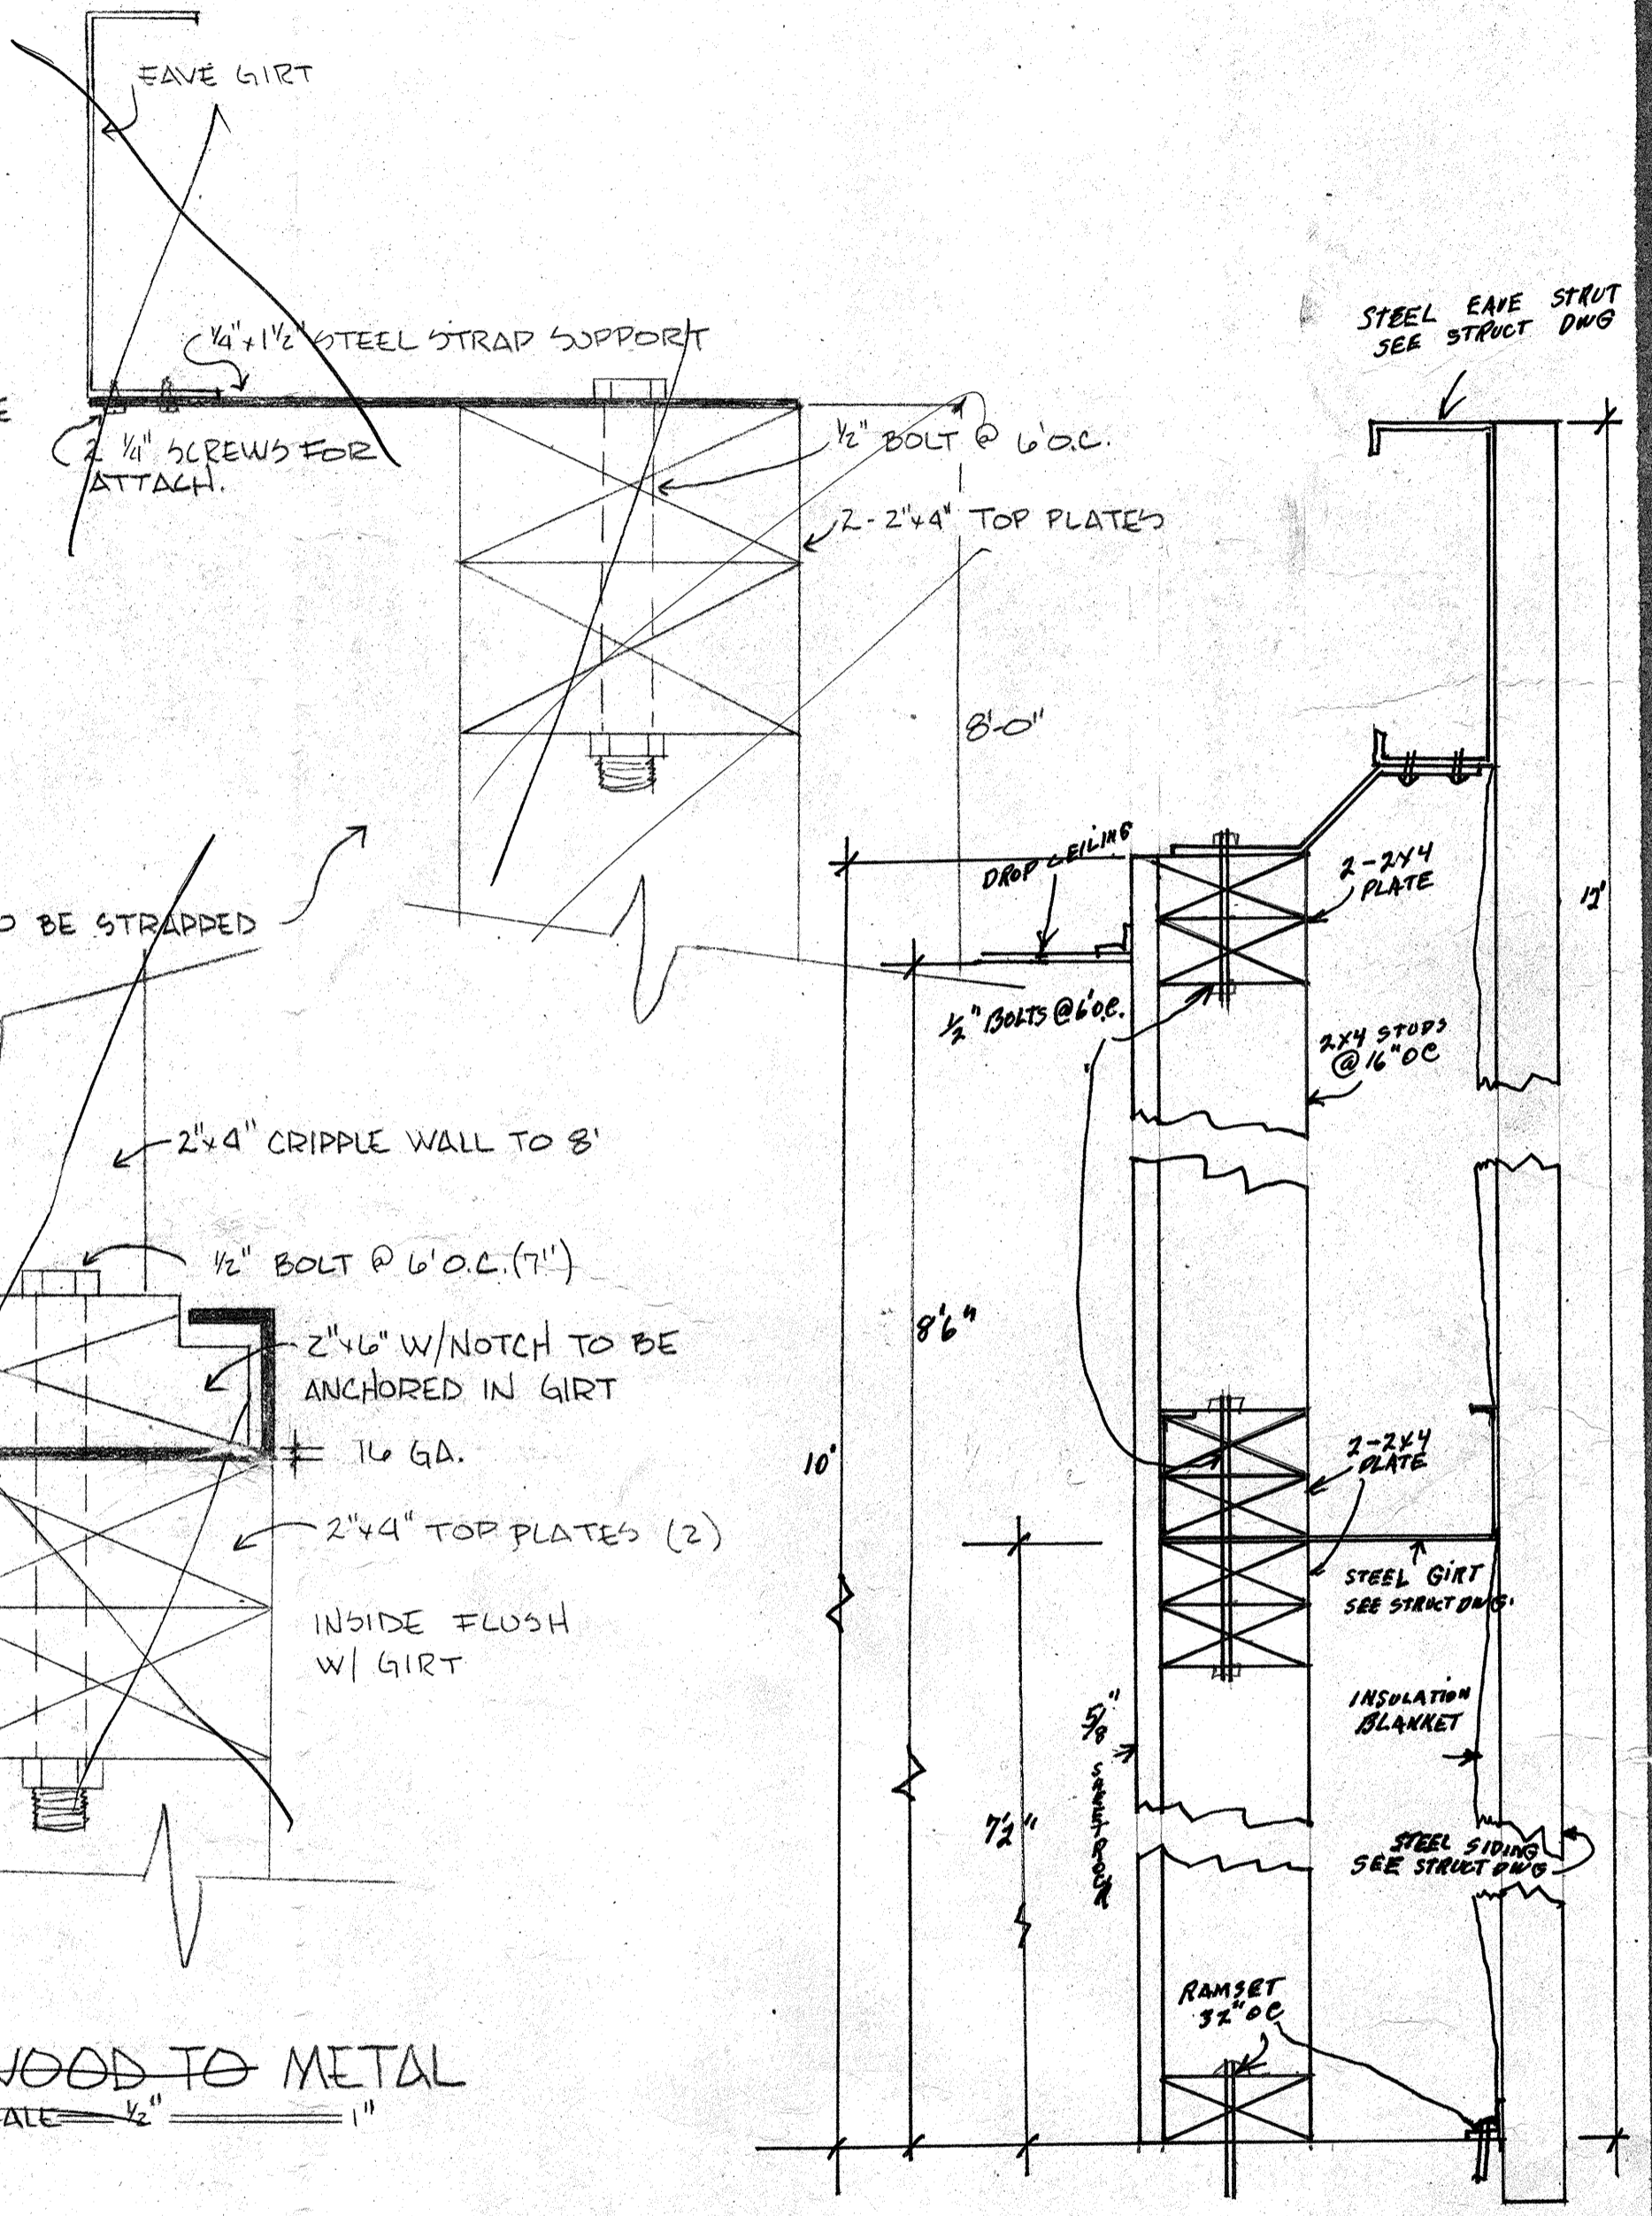 EAVE GIRT
1/4"x1 1/2" STEEL STRAP SUPPORT
2 1/4" SCREWS FOR
ATTACH.
1/2" BOLT @ 6'O.C.
2-2"x4" TOP PLATES
8'-0"
BE STRAPPED
2"x4" CRIPPLE WALL TO 8'
1/2" BOLT @ 6'O.C.(7")
2"x6" W/NOTCH TO BE
ANCHORED IN GIRT
16 GA.
2"x4" TOP PLATES (2)
INSIDE FLUSH
W/ GIRT
WOOD TO METAL
ALE 1/2" 1"
STEEL EAVE STRUT
SEE STRUCT DWG
DROP CEILING
2-2X4
PLATE
12'
1/2" BOLTS @ 6'O.C.
2X4 STUDS
@ 16" OC
8'6"
10'
2-2X4
PLATE
STEEL GIRT
SEE STRUCT DWG.
INSULATION
BLANKET
5/8" SHEETROCK
7'2"
STEEL SIDING
SEE STRUCT DWG
RAMSET
32" OC